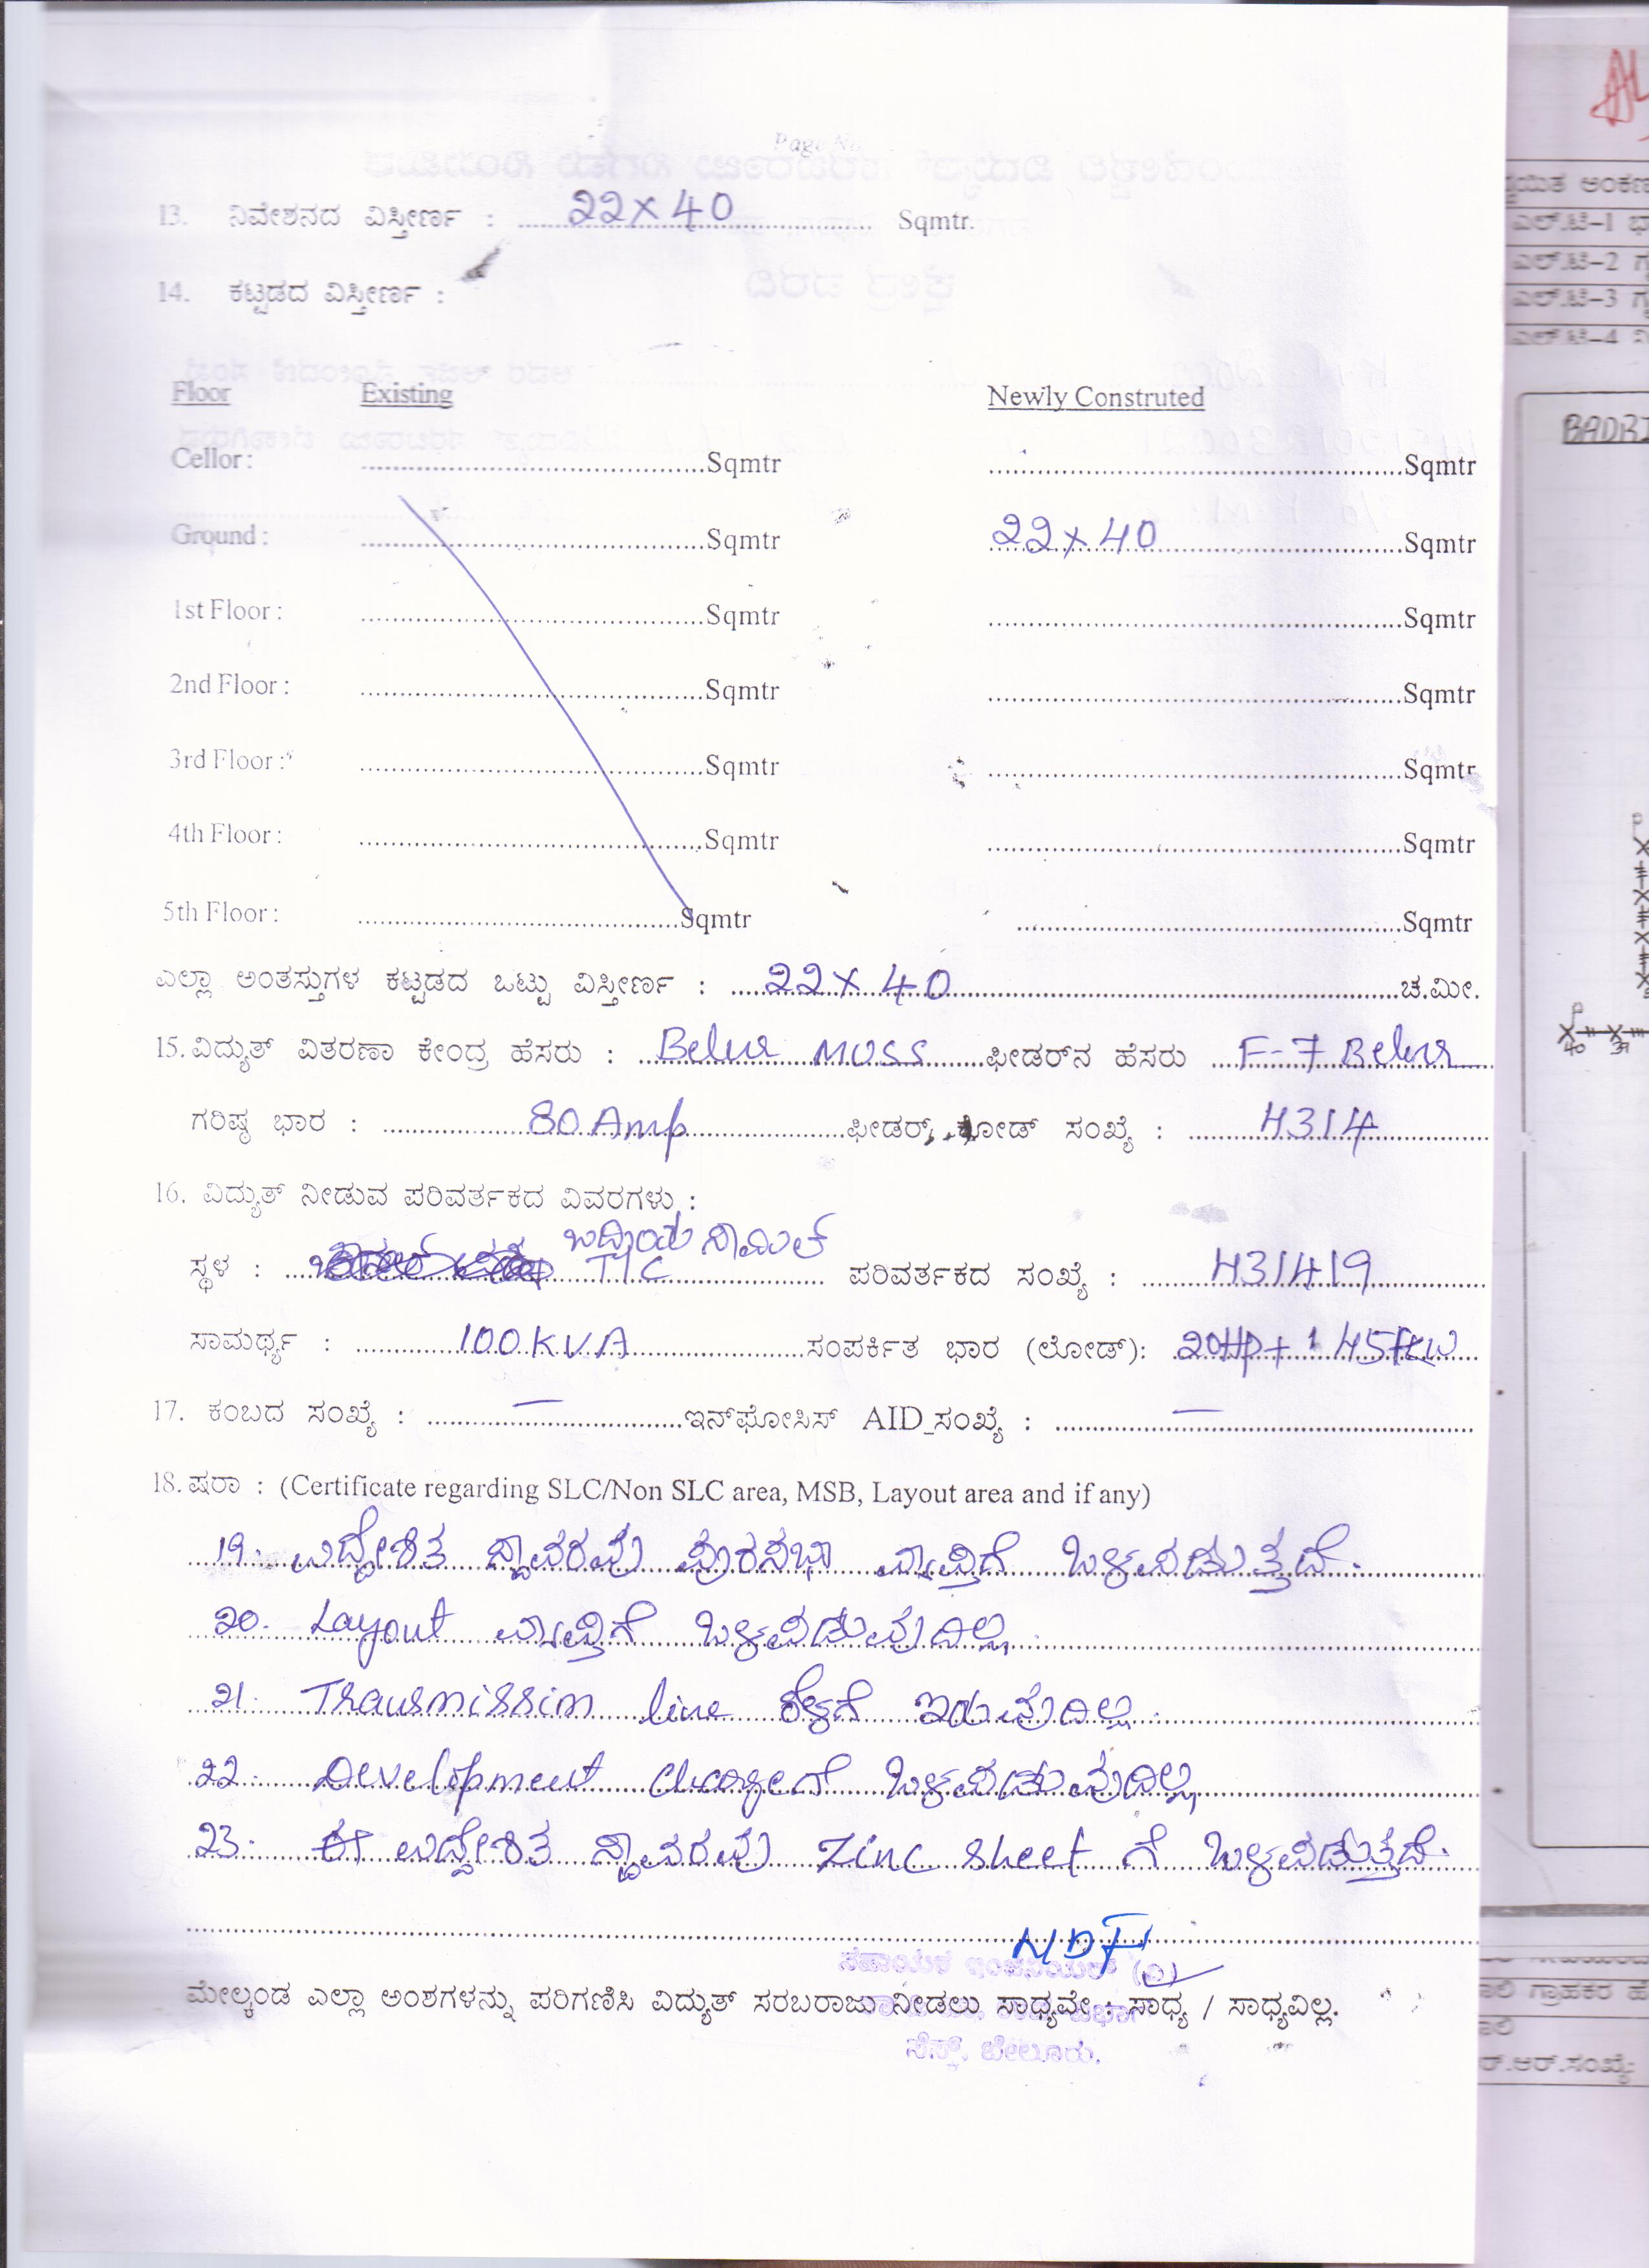 Page No
13. ನಿವೇಶನದ ವಿಸ್ತೀರ್ಣ : 22 x 40 Sqmtr.
14. ಕಟ್ಟಡದ ವಿಸ್ತೀರ್ಣ :
Floor Existing Newly Construted
Cellor : Sqmtr Sqmtr
Ground : Sqmtr 22 x 40 Sqmtr
1st Floor : Sqmtr Sqmtr
2nd Floor : Sqmtr Sqmtr
3rd Floor : Sqmtr Sqmtr
4th Floor : Sqmtr Sqmtr
5th Floor : Sqmtr Sqmtr
ಎಲ್ಲಾ ಅಂತಸ್ತುಗಳ ಕಟ್ಟಡದ ಒಟ್ಟು ವಿಸ್ತೀರ್ಣ : 22 x 40 ಚ.ಮೀ.
15. ವಿದ್ಯುತ್ ವಿತರಣಾ ಕೇಂದ್ರ ಹೆಸರು : Belur MUSS ಫೀಡರ್‌ನ ಹೆಸರು F-7 Belur
ಗರಿಷ್ಠ ಭಾರ : 80 Amp ಫೀಡರ್ ಕೋಡ್ ಸಂಖ್ಯೆ : 4314
16. ವಿದ್ಯುತ್ ನೀಡುವ ಪರಿವರ್ತಕದ ವಿವರಗಳು :
ಬದ್ರಿಯ ಸಾಮಿಲ್
ಸ್ಥಳ : T/C ಪರಿವರ್ತಕದ ಸಂಖ್ಯೆ : 431419
ಸಾಮರ್ಥ್ಯ : 100 KVA ಸಂಪರ್ಕಿತ ಭಾರ (ಲೋಡ್): 20HP +
17. ಕಂಬದ ಸಂಖ್ಯೆ : — ಇನ್‌ಫೋಸಿಸ್ AID_ಸಂಖ್ಯೆ : —
18. ಷರಾ : (Certificate regarding SLC/Non SLC area, MSB, Layout area and if any)
19. ಉದ್ದೇಶಿತ ಸ್ಥಾವರವು ಪುರಸಭಾ ವ್ಯಾಪ್ತಿಗೆ ಒಳಪಡುತ್ತದೆ.
20. Layout ವ್ಯಾಪ್ತಿಗೆ ಒಳಪಡುವುದಿಲ್ಲ.
21. Transmission line ಕೆಳಗೆ ಇರುವುದಿಲ್ಲ.
22. Development chargeಗೆ ಒಳಪಡುವುದಿಲ್ಲ
23. ಈ ಉದ್ದೇಶಿತ ಸ್ಥಾವರವು Zinc sheet ಗೆ ಒಳಪಡುತ್ತದೆ.
ಸಹಾಯಕ ಇಂಜಿನಿಯರ್ (ವಿ)
ಮೇಲ್ಕಂಡ ಎಲ್ಲಾ ಅಂಶಗಳನ್ನು ಪರಿಗಣಿಸಿ ವಿದ್ಯುತ್ ಸರಬರಾಜು ನೀಡಲು ಸಾಧ್ಯವೇ : ಸಾಧ್ಯ / ಸಾಧ್ಯವಿಲ್ಲ.
ಸೆಸ್ಕ್, ಬೇಲೂರು.
ಎಲ್.ಟಿ-1
ಎಲ್.ಟಿ-2
ಎಲ್.ಟಿ-3
ಎಲ್.ಟಿ-4
BADRI
ಗ್ರಾಹಕರ
ಆರ್.ಸಂಖ್ಯೆ: